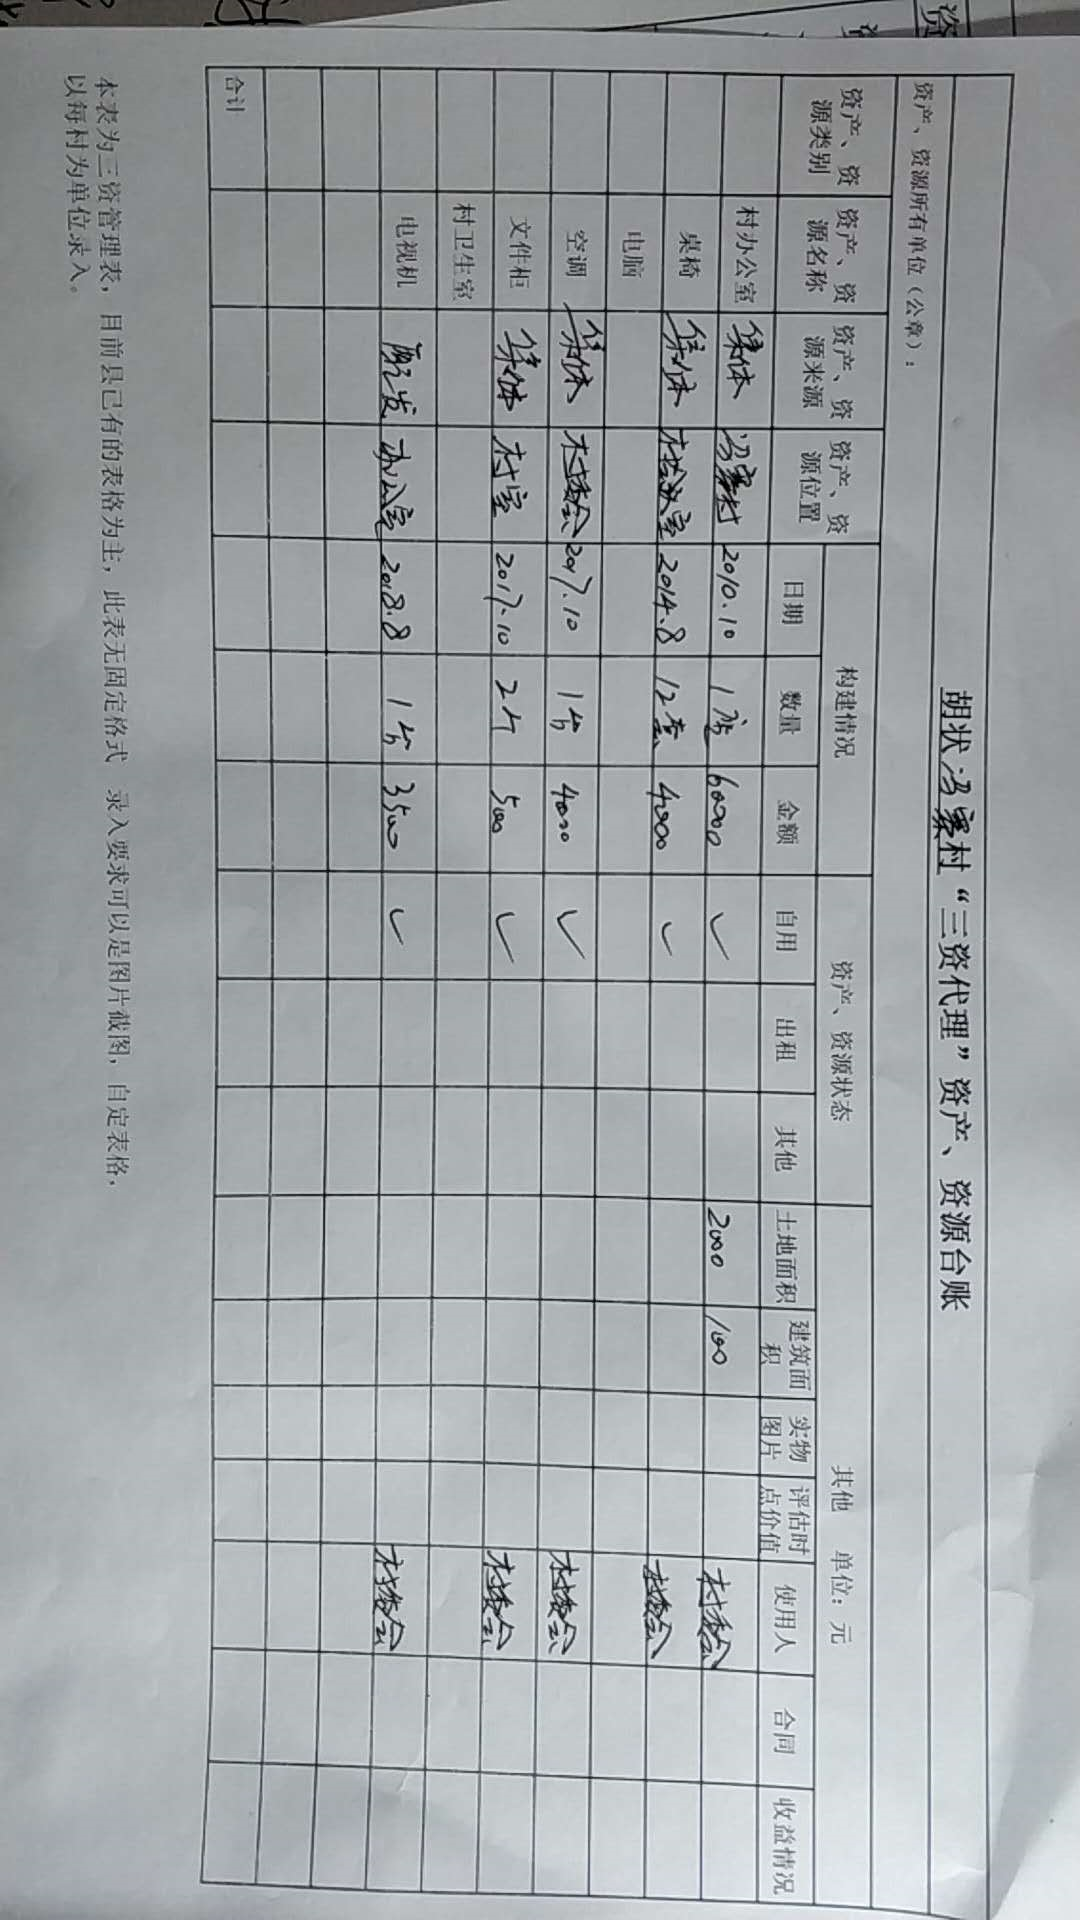 胡状冯寨村“三资代理”资产、资源台账
资产、资源所有单位（公章）：
资产、资源类别 资产、资源名称 资产、资源来源 资产、资源位置 构建情况 资产、资源状态 其他 单位：元
日期 数量 金额 自用 出租 其他 土地面积 建筑面积 实物图片 评估时点价值 使用人 合同 收益情况
村办公室 集体 冯寨村 2010.10 1 60000 ✓ 2000 100 村委会
桌椅 集体 2014.8 12套 4000 ✓ 村委会
电脑
空调 集体 村委会 2017.10 1台 4000 ✓ 村委会
文件柜 集体 村室 2017.10 2个 500 ✓ 村委会
村卫生室
电视机 办公室 2018.8 1台 3500 ✓ 村委会
合计
本表为三资管理表，目前县已有的表格为主，此表无固定格式 录入要求可以是图片截图，自定表格，
以每村为单位录入。